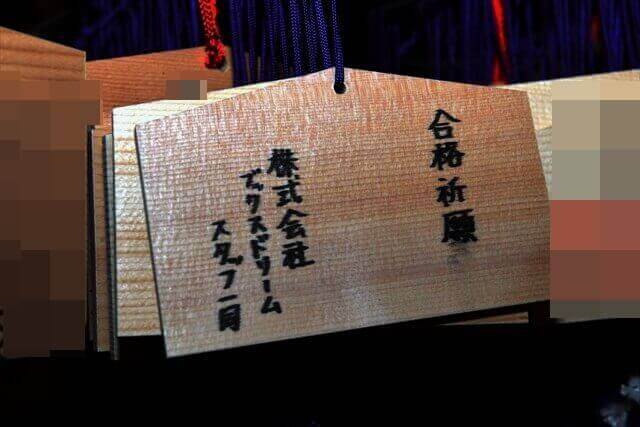 合格祈願
株式会社
ブックスドリーム
スタッフ一同